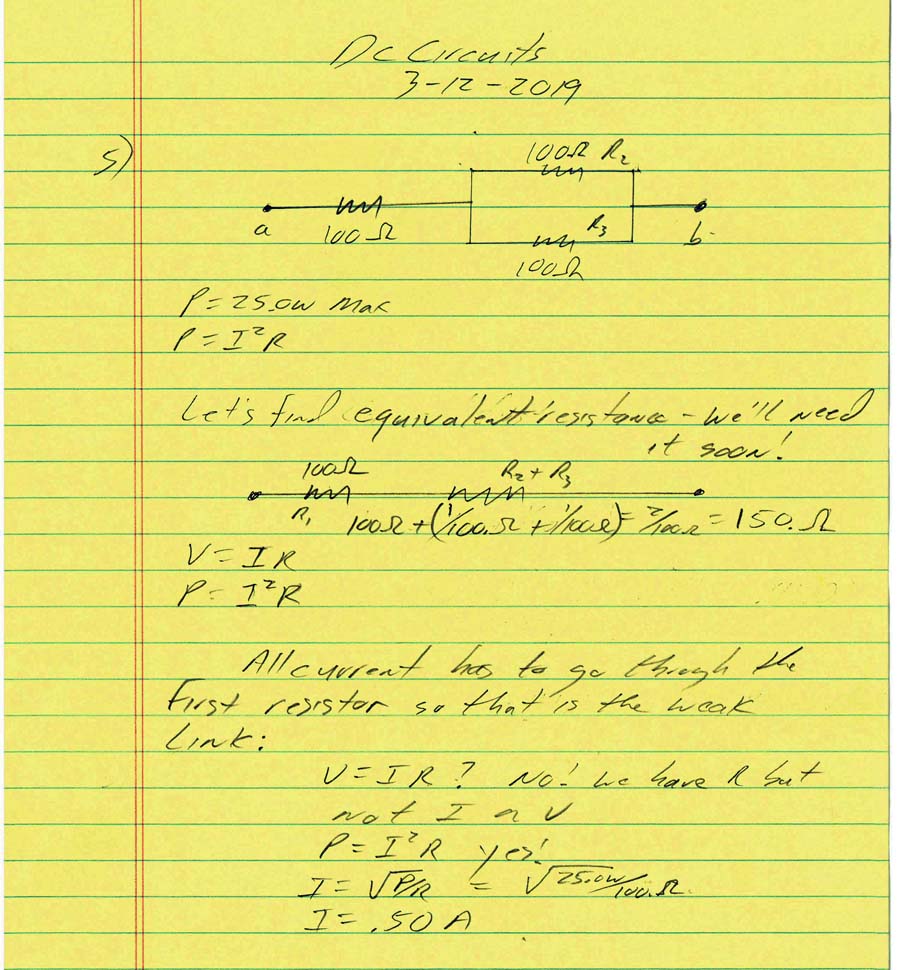 Dc Circuits
3-12-2019
5)
100Ω R2
a
100Ω
R3
b
100Ω
P=25.0W Max
P=I²R
Let's find equivalent resistance - we'll need
it soon!
100Ω
R2+R3
R1
100Ω+(1/100.Ω + 1/100Ω)=2/100Ω = 150.Ω
V=IR
P=I²R
All current has to go through the
First resistor so that is the weak
Link:
V=IR? No! we have R but
not I or V
P=I²R yes!
I=√P/R = √25.0W/100.Ω
I=.50A